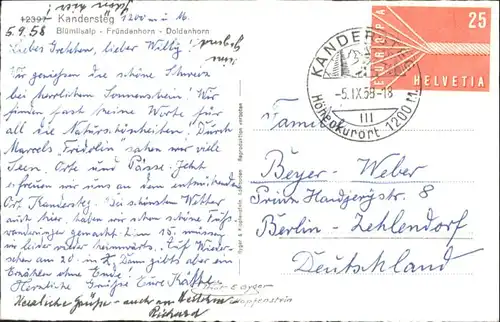 12397 Kandersteg 1200 m ü. M.
Blümlisalp - Fründenhorn - Doldenhorn
5.9.58
Liebes Gretchen, lieber Willy!
Wir geniessen die schöne Schweiz
bei herrlichem Sonnenschein! Wir
finden fast keine Worte für
all die Naturschönheiten! Durch
Marcels "Friderlin" sahen wir viele
Seen, Orte und Pässe. Jetzt
erfreuen wir uns an dem entzückenden
Ort Kandersteg. Bei schönstem Wetter
auch hier, haben wir schon schöne Fuß-
wanderungen gemacht. Am 15. müssen
wir leider wieder heimwärts. Auf Wieder-
sehen am 20. in Z. Dann gibts aber ein
Erzählen ohne Ende!
Herzliche Grüße Eure Käthe
Herzliche Grüße - auch an
Richard
Reproduction verboten
KANDERSTEG
-5.IX.58-18
III
Höhenkurort 1200 M.
EUROPA
25
HELVETIA
Familie
Beyer-Weber
Prinz Handjerystr. 8
Berlin - Zehlendorf
Deutschland